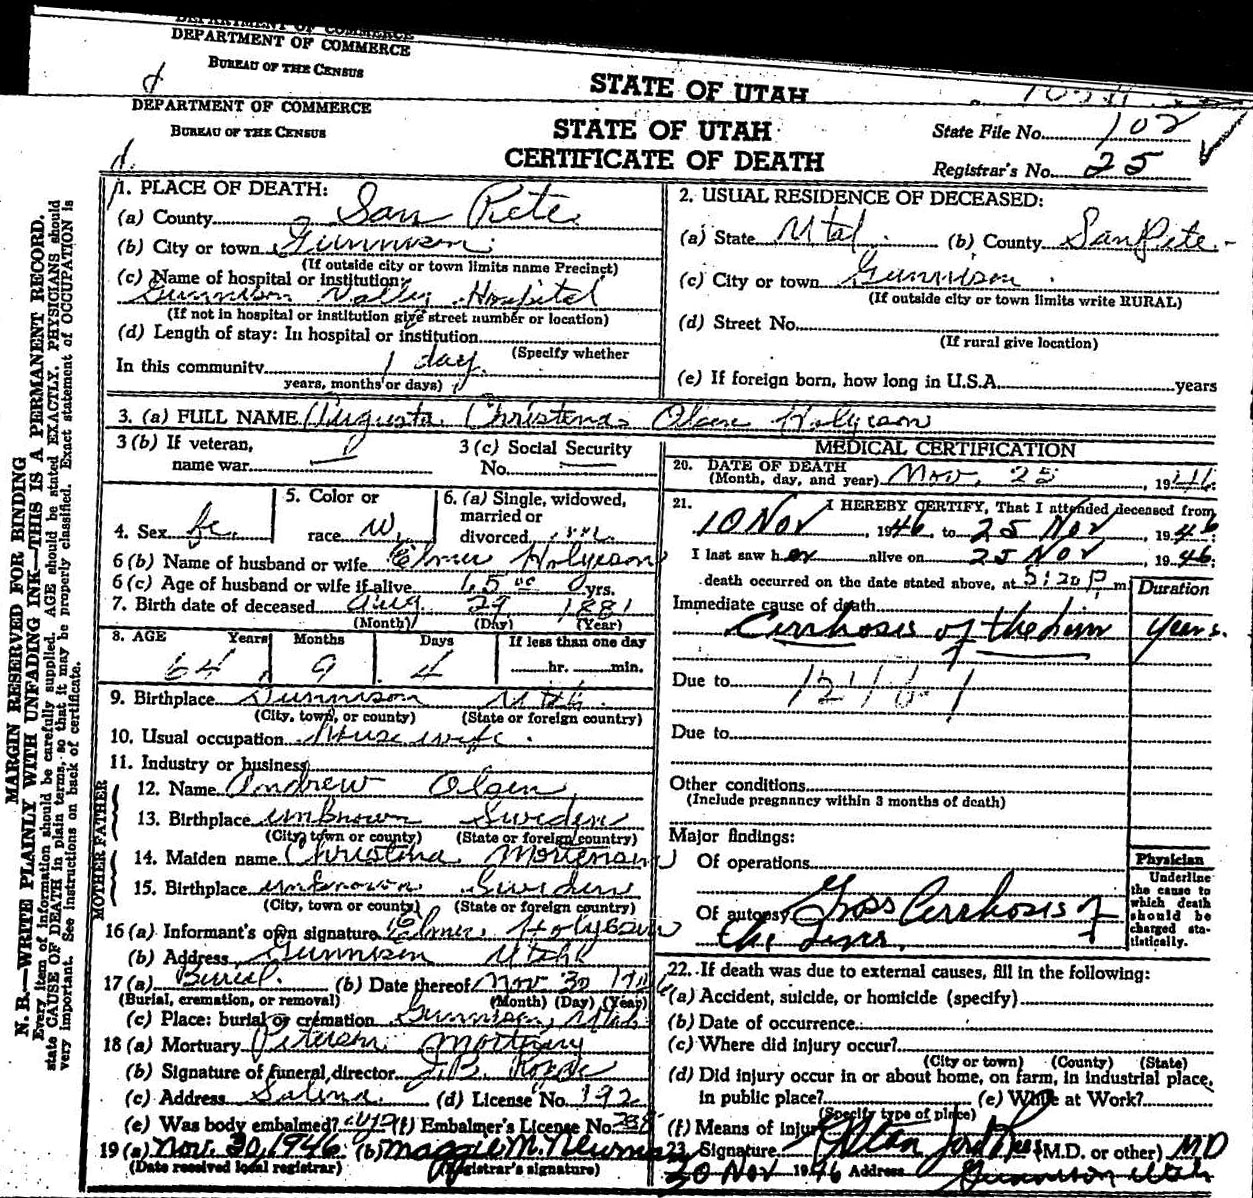 DEPARTMENT OF COMMERCE
DEPARTMENT OF COMMERCE
BUREAU OF THE CENSUS
STATE OF UTAH
DEPARTMENT OF COMMERCE
BUREAU OF THE CENSUS
STATE OF UTAH
CERTIFICATE OF DEATH
State File No. 102
Registrar's No. 25
MARGIN RESERVED FOR BINDING
N. B.—WRITE PLAINLY WITH UNFADING INK—THIS IS A PERMANENT RECORD.
Every item of information should be carefully supplied. AGE should be stated EXACTLY. PHYSICIANS should
state CAUSE OF DEATH in plain terms, so that it may be properly classified. Exact statement of OCCUPATION is
very important. See instructions on back of certificate.
1. PLACE OF DEATH:
(a) County San Pete
(b) City or town Gunnison
(If outside city or town limits name Precinct)
(c) Name of hospital or institution:
Gunnison Valley Hospital
(If not in hospital or institution give street number or location)
(d) Length of stay: In hospital or institution
(Specify whether
In this community 1 day
years, months or days)
2. USUAL RESIDENCE OF DECEASED:
(a) State Utah (b) County SanPete
(c) City or town Gunnison
(If outside city or town limits write RURAL)
(d) Street No.
(If rural give location)
(e) If foreign born, how long in U.S.A. years
3. (a) FULL NAME Augusta Christena Olsen Holyeson
3 (b) If veteran,
name war
3 (c) Social Security
No.
4. Sex fe.
5. Color or
race W.
6. (a) Single, widowed,
married or
divorced m.
6 (b) Name of husband or wife Elmer Holyeson
6 (c) Age of husband or wife if alive 65 yrs.
7. Birth date of deceased Aug. 29 1881
(Month) (Day) (Year)
8. AGE Years Months Days If less than one day
64 9 4 hr. min.
9. Birthplace Gunnison Utah
(City, town, or county) (State or foreign country)
10. Usual occupation House wife
11. Industry or business
FATHER
12. Name Andrew Olsen
13. Birthplace unknown Sweden
(City, town or county) (State or foreign country)
MOTHER
14. Maiden name Christina Mortensen
15. Birthplace unknown Sweden
(City, town or county) (State or foreign country)
16 (a) Informant's own signature Elmer Holyeson
(b) Address Gunnison Utah
17 (a) Burial (b) Date thereof Nov 30 1946
(Burial, cremation, or removal) (Month) (Day) (Year)
(c) Place: burial or cremation Gunnison, Utah
18 (a) Mortuary Peterson Mortuary
(b) Signature of funeral director J.B.
(c) Address Salina (d) License No. 192
(e) Was body embalmed? (f) Embalmer's License No. 238
19 (a) Nov. 30, 1946 (b) Maggie M.
(Date received local registrar) (Registrar's signature)
MEDICAL CERTIFICATION
20. DATE OF DEATH
(Month, day, and year) Nov. 25, 1946
21. I HEREBY CERTIFY, That I attended deceased from
10 Nov, 1946, to 25 Nov, 1946
I last saw her alive on 25 Nov, 1946;
death occurred on the date stated above, at 5:20 P. m
Duration
Immediate cause of death
Cirrhosis of the liver years.
Due to
Due to
Other conditions
(Include pregnancy within 3 months of death)
Major findings:
Of operations
Of autopsy Gross Cirrhosis of
the liver.
Physician
Underline
the cause to
which death
should be
charged sta-
tistically.
22. If death was due to external causes, fill in the following:
(a) Accident, suicide, or homicide (specify)
(b) Date of occurrence
(c) Where did injury occur?
(City or town) (County) (State)
(d) Did injury occur in or about home, on farm, in industrial place,
in public place? (e) While at Work?
(Specify type of place)
(f) Means of injury
23. Signature (M.D. or other) MD
30 Nov 1946 Address Gunnison Utah